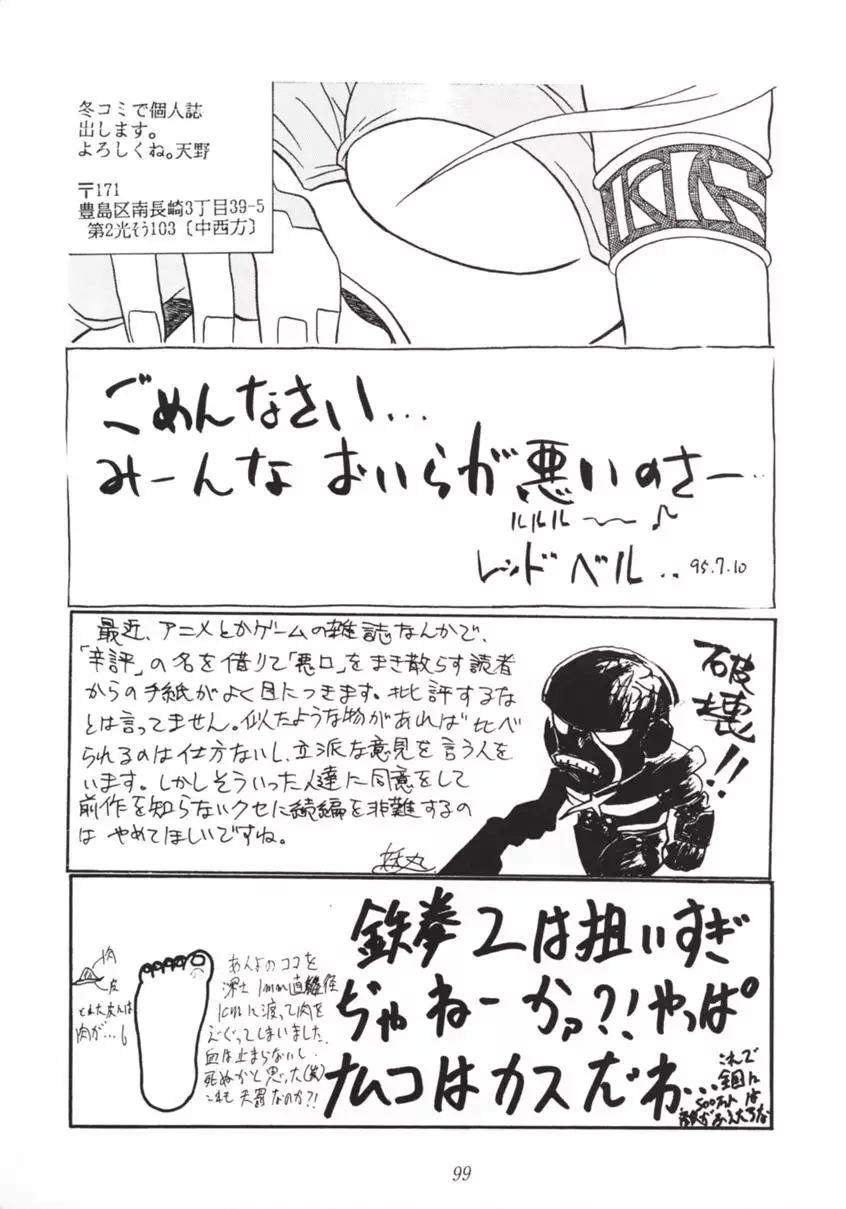 冬コミで個人誌
出します。
よろしくね。天野
〒171
豊島区南長崎3丁目39-5
第2光そう103〔中西方〕
ごめんなさい...
みーんな おいらが悪いのさー..
ルルル〜〜♪
レッドベル.. 95.7.10
最近、アニメとかゲームの雑誌なんかで、
「辛評」の名を借りて「悪口」をまき散らす読者
からの手紙がよく目につきます。批評するな
とは言ってません。似たような物があれば比べ
られるのは仕方ないし、立派な意見を言う人も
います。しかしそういった人達に同意をして
前作を知らないクセに続編を非難するの
は やめてほしいですね。
妖丸
破壊!!
鉄拳2は狙いすぎ
ぢゃねーかァ?!やっぱ
ナムコはカスだわ...
これで
全国に
500万人は
敵がふえたろな
あんよのココを
深さ1mm直径
1cmに渡って肉を
えぐってしまいました
血は止まらないし、
死ぬかと思った(笑)
これも天罰なのか?!
肉
皮
とれた皮には
肉が...
99